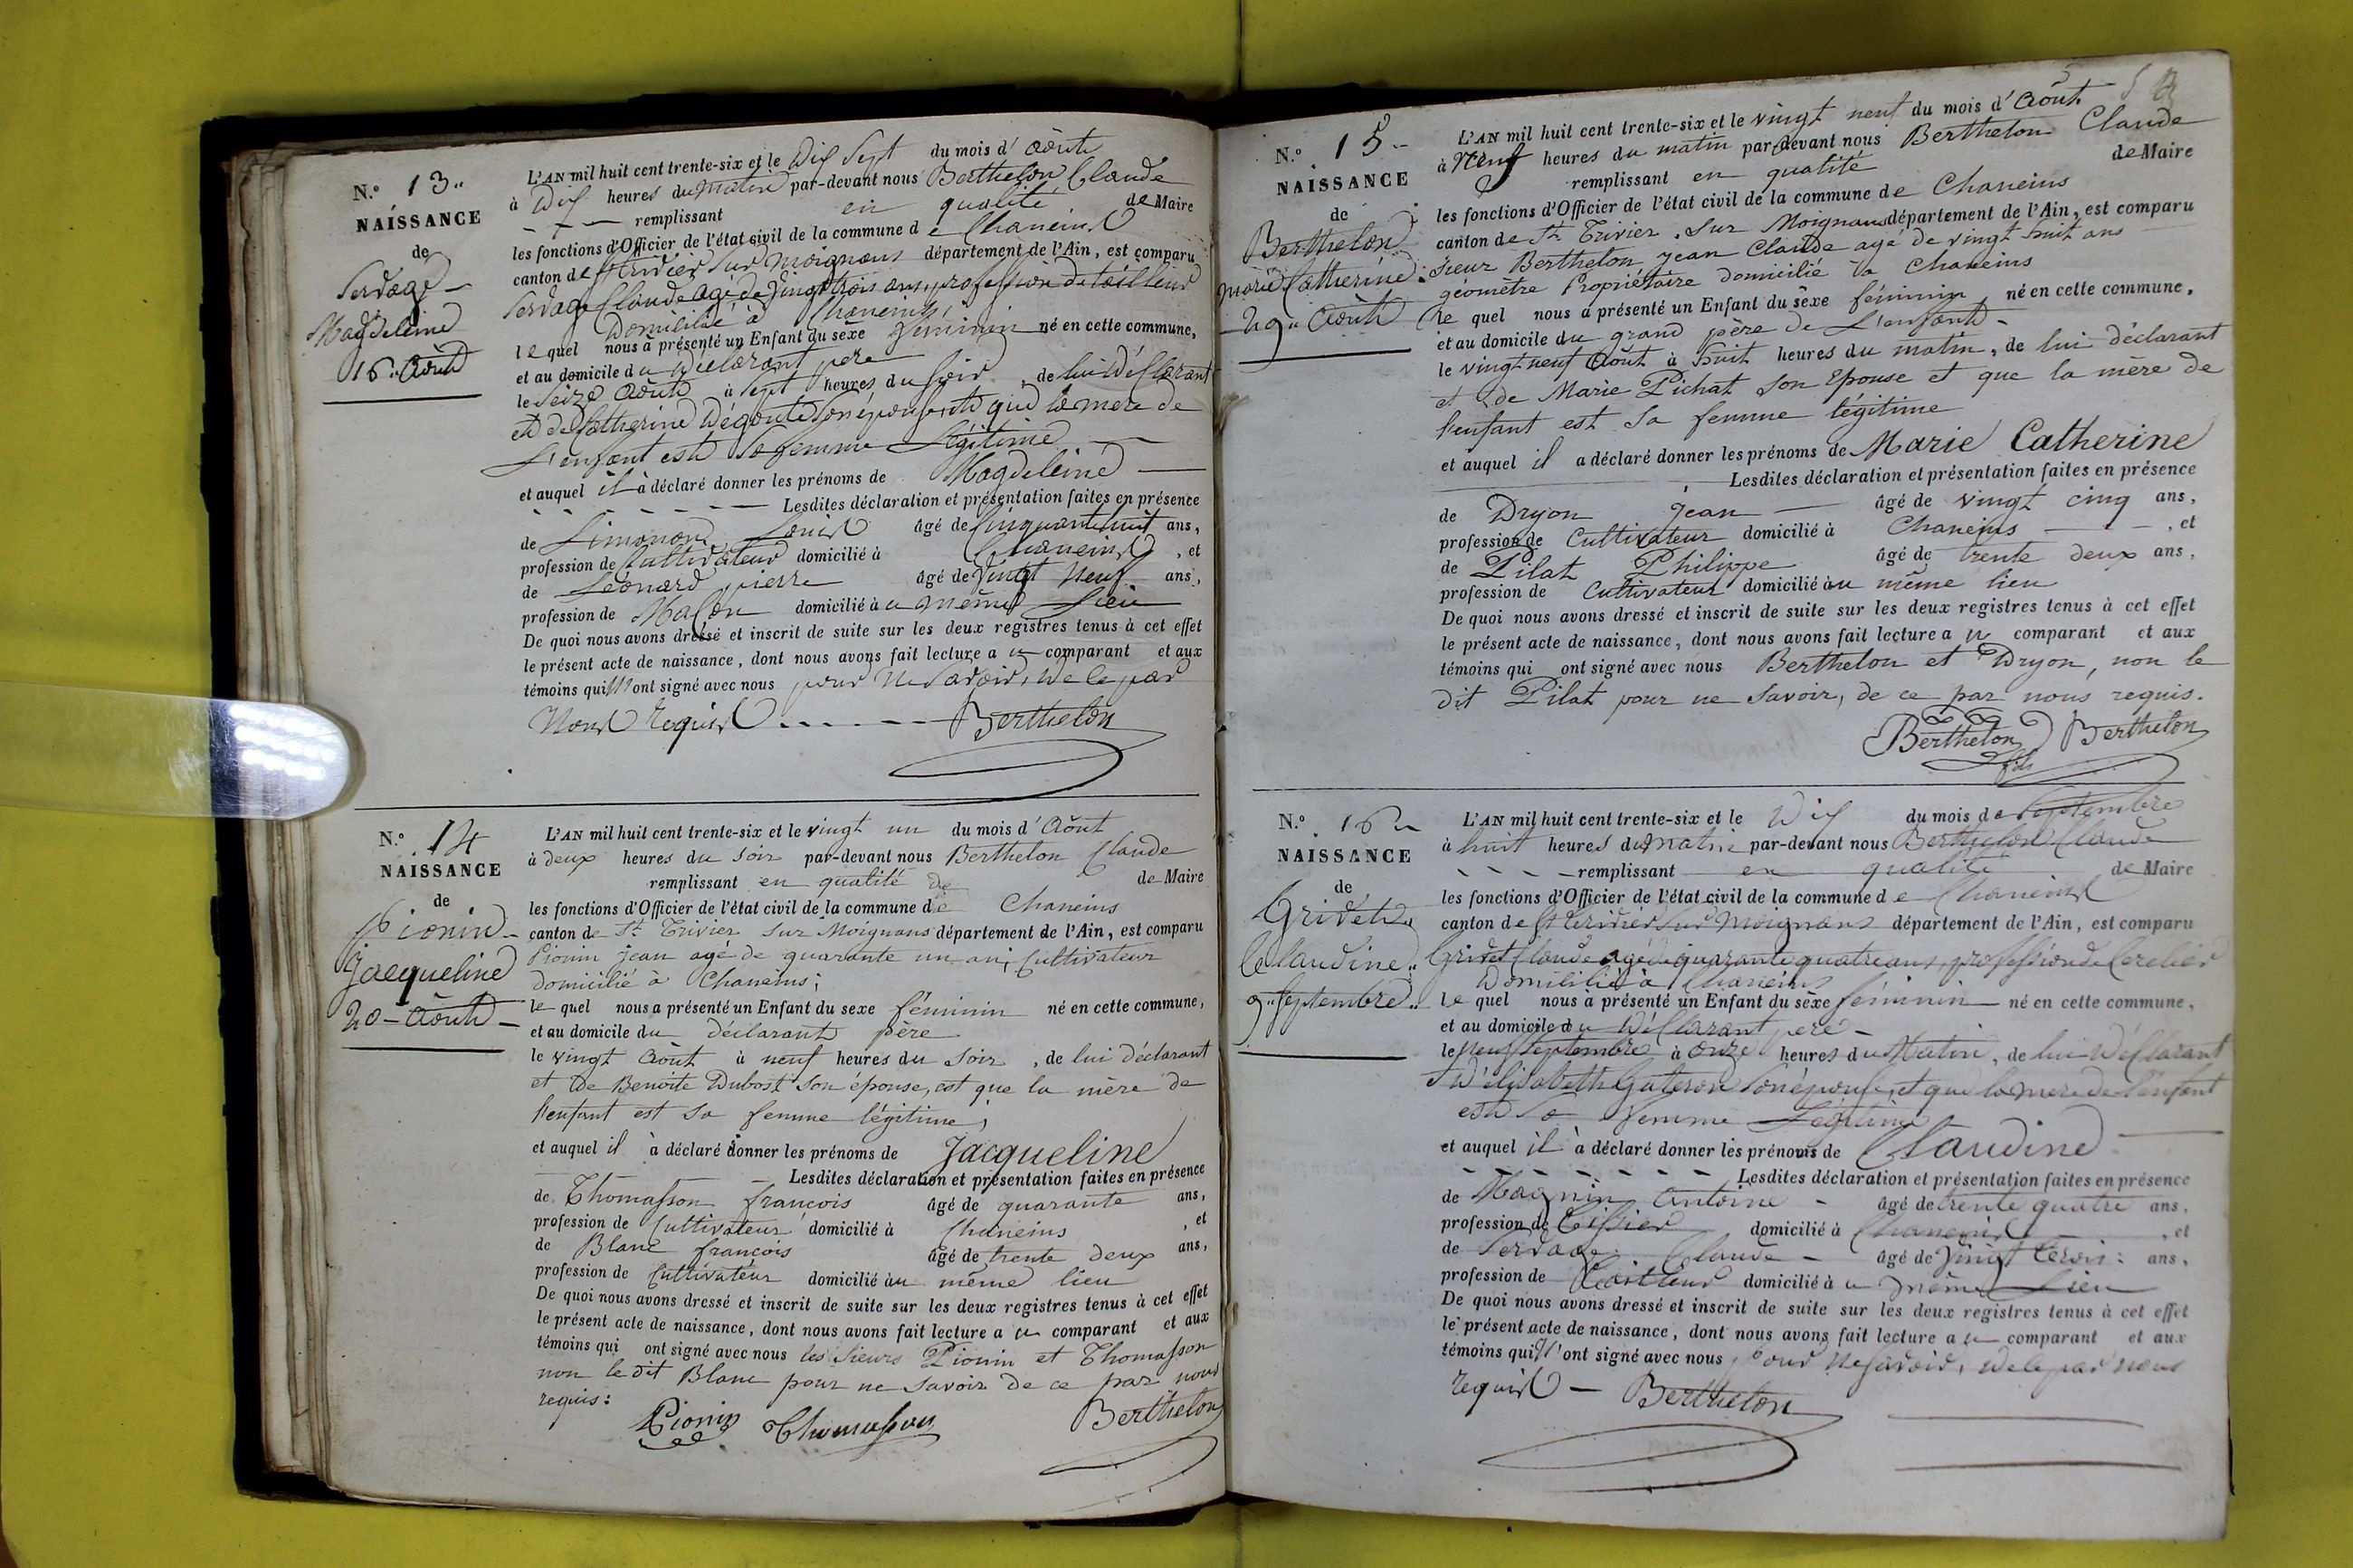 N.º 13"
NAISSANCE
de
Servage
Magdeleine
16" Août
L'AN mil huit cent trente-six et le Dix Sept du mois d'Août
à Dix heures du matin par-devant nous Berthelon Claude
remplissant en qualité de Maire
les fonctions d'Officier de l'état civil de la commune de Chaneins
canton de St trivier Sur moignans département de l'Ain, est comparu
Servage Claude agé de vingt trois ans, profession de tailleur
Domicilié à Chaneins
le quel nous a présenté un Enfant du sexe féminin né en cette commune,
et au domicile du Déclarant père
le Seize Août à Sept heures du Soir, de lui Déclarant
et de Catherine Dégoute Son épouse, et que la mère de
L'enfant est Sa femme Légitime
et auquel il a déclaré donner les prénoms de Magdeleine
Lesdites déclaration et présentation faites en présence
de Limonon Louis âgé de Cinquante huit ans,
profession de Cultivateur domicilié à Chaneins, et
de Léonard pierre âgé de Vingt Neuf ans,
profession de Maçon domicilié au même Lieu
De quoi nous avons dressé et inscrit de suite sur les deux registres tenus à cet effet
le présent acte de naissance, dont nous avons fait lecture au comparant et aux
témoins qui n'ont signé avec nous pour ne Savoir, de ce par
Nous Requis Berthelon
N.º 14
NAISSANCE
de
Pionin
Jacqueline
20 - Août
L'AN mil huit cent trente-six et le vingt un du mois d'Août
à deux heures du Soir par-devant nous Berthelon Claude
remplissant en qualité de de Maire
les fonctions d'Officier de l'état civil de la commune de Chaneins
canton de St Trivier Sur Moignans département de l'Ain, est comparu
Pionin Jean agé de quarante un ans, Cultivateur
domicilié à Chaneins;
le quel nous a présenté un Enfant du sexe féminin né en cette commune,
et au domicile du déclarant père
le vingt Août à neuf heures du Soir, de lui Déclarant
et de Benoite Dubost Son épouse, est que la mère de
l'enfant est Sa femme légitime,
et auquel il a déclaré donner les prénoms de Jacqueline
Lesdites déclaration et présentation faites en présence
de Thomasson françois âgé de quarante ans,
profession de Cultivateur domicilié à Chaneins, et
de Blanc françois âgé de trente deux ans,
profession de Cultivateur domicilié au même lieu
De quoi nous avons dressé et inscrit de suite sur les deux registres tenus à cet effet
le présent acte de naissance, dont nous avons fait lecture au comparant et aux
témoins qui ont signé avec nous les Sieurs Pionin et Thomasson
non le dit Blanc pour ne Savoir de ce par nous
requis:
Pionin Thomasson Berthelon
5
N.º 15
NAISSANCE
de
Berthelon
Marie Catherine
29" Août
L'AN mil huit cent trente-six et le vingt neuf du mois d'Août
à Neuf heures du matin par-devant nous Berthelon Claude
remplissant en qualité de Maire
les fonctions d'Officier de l'état civil de la commune de Chaneins
canton de St Trivier Sur Moignans département de l'Ain, est comparu
Sieur Berthelon Jean Claude agé de vingt huit ans
géomètre Propriétaire domicilié à Chaneins
le quel nous a présenté un Enfant du sexe féminin né en cette commune,
et au domicile du grand père de L'enfant
le vingt neuf Août à huit heures du matin, de lui déclarant
et de Marie Pichat Son Epouse et que la mère de
l'enfant est Sa femme légitime
et auquel il a déclaré donner les prénoms de Marie Catherine
Lesdites déclaration et présentation faites en présence
de Dryon Jean âgé de vingt cinq ans,
profession de Cultivateur domicilié à Chaneins, et
de Pilat Philippe âgé de trente deux ans,
profession de Cultivateur domicilié au même lieu
De quoi nous avons dressé et inscrit de suite sur les deux registres tenus à cet effet
le présent acte de naissance, dont nous avons fait lecture au comparant et aux
témoins qui ont signé avec nous Berthelon et Dryon, non le
dit Pilat pour ne Savoir, de ce par nous requis.
Berthelon Berthelon
fils
N.º 16
NAISSANCE
de
Grivet
Claudine
9" Septembre
L'AN mil huit cent trente-six et le Dix du mois de Septembre
à huit heures du Matin par-devant nous Berthelon Claude
remplissant en qualité de Maire
les fonctions d'Officier de l'état civil de la commune de Chaneins
canton de St trivier Sur moignans département de l'Ain, est comparu
Grivet Claude agé de quarante quatre ans, profession de Cerclier
Domicilié à Chaneins
le quel nous a présenté un Enfant du sexe féminin né en cette commune,
et au domicile du Déclarant père
le Neuf Septembre à onze heures du Matin, de lui Déclarant
et D'élisabeth Gateron Son épouse, et que la mere de l'enfant
est Sa femme Légitime
et auquel il a déclaré donner les prénoms de Claudine
Lesdites déclaration et présentation faites en présence
de Magnin Antoine âgé de trente quatre ans,
profession de Tissier domicilié à Chaneins, et
de Servage Claude âgé de Vingt trois ans,
profession de Tailleur domicilié au même Lieu
De quoi nous avons dressé et inscrit de suite sur les deux registres tenus à cet effet
le présent acte de naissance, dont nous avons fait lecture au comparant et aux
témoins qui n'ont signé avec nous Pour ne Savoir, de ce par nous
requis Berthelon